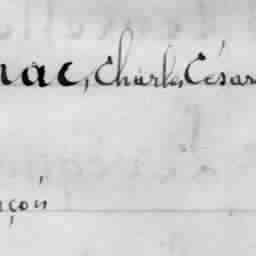 nac, Charles, César
nçois